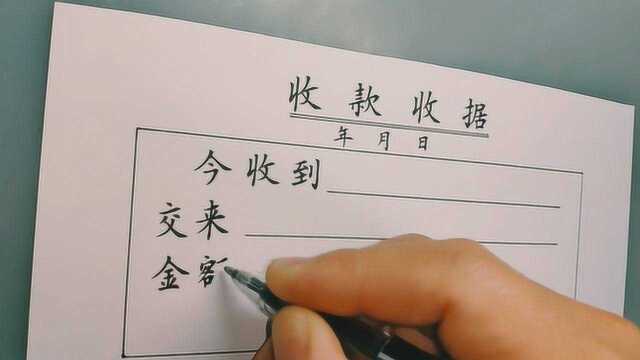 收款收据
年月日
今收到
交来
金额